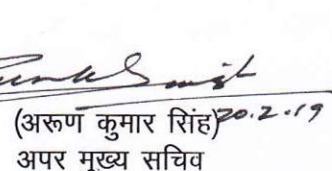 (अरूण कुमार सिंह) 20.2.19
अपर मुख्य सचिव